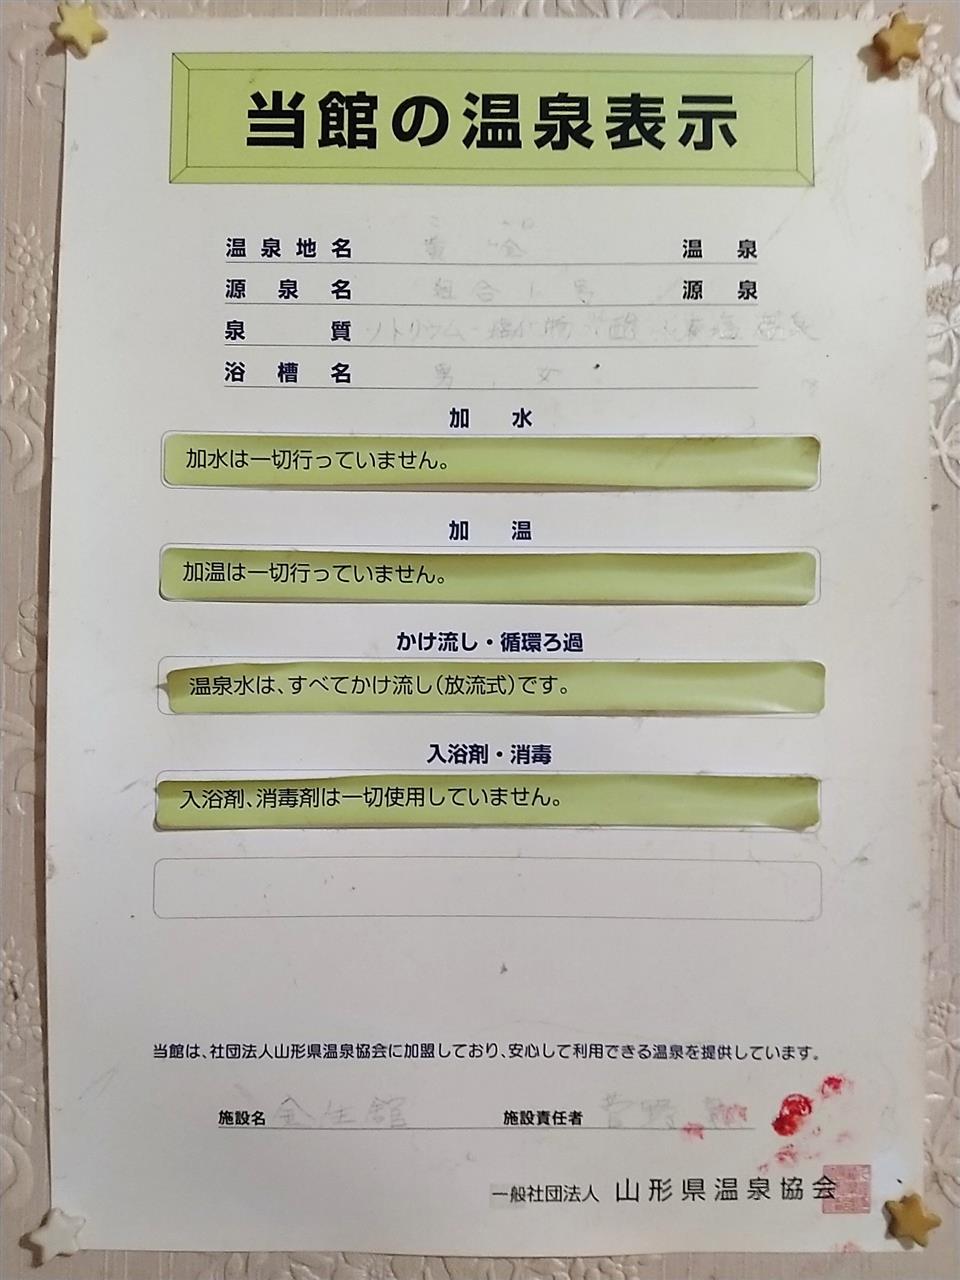 当館の温泉表示
温泉地名 黄金 温泉
源泉名 組合1号 源泉
泉質
浴槽名 男、女
加水
加水は一切行っていません。
加温
加温は一切行っていません。
かけ流し・循環ろ過
温泉水は、すべてかけ流し(放流式)です。
入浴剤・消毒
入浴剤、消毒剤は一切使用していません。
当館は、社団法人山形県温泉協会に加盟しており、安心して利用できる温泉を提供しています。
施設名 金生館 施設責任者 菅野
一般社団法人 山形県温泉協会